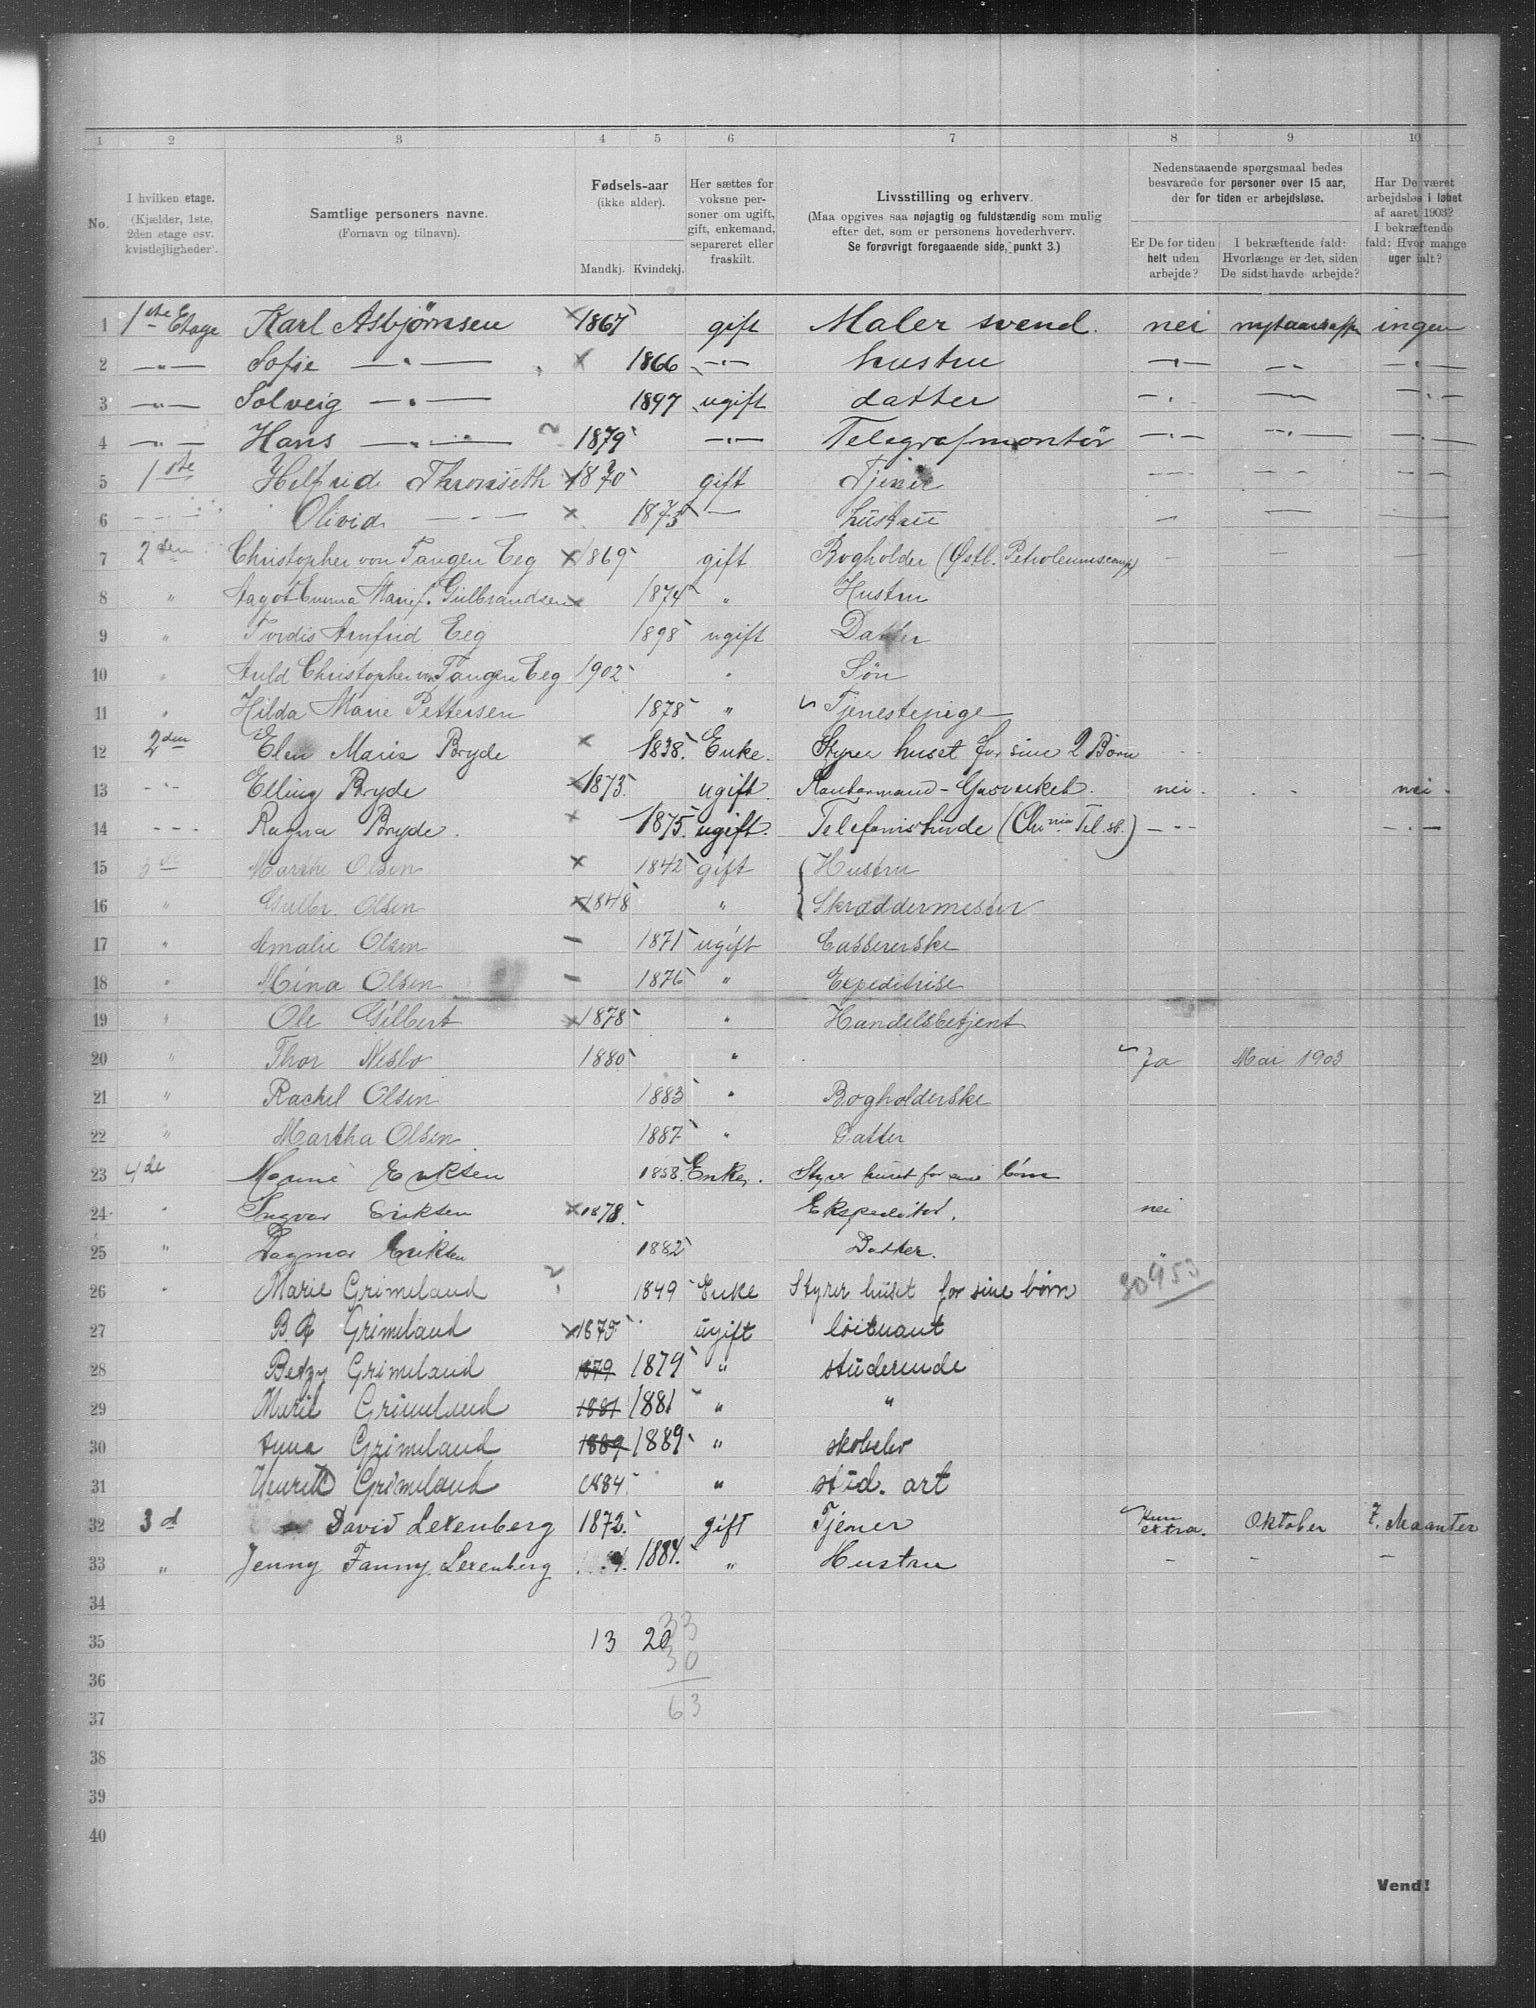 1 2 3 4 5 6 7 8 9 10
No.
I hvilken etage.
(Kjælder, 1ste, 2den etage osv. kvistlejligheder).
Samtlige personers navne.
(Fornavn og tilnavn).
Fødsels-aar
(ikke alder).
Mandkj. Kvindekj.
Her sættes for voksne personer om ugift, gift, enkemand, separeret eller fraskilt.
Livsstilling og erhverv.
(Maa opgives saa nøjagtig og fuldstændig som mulig
efter det, som er personens hovederhverv.
Se forøvrigt foregaaende side, punkt 3.)
Nedenstaaende spørgsmaal bedes
besvarede for personer over 15 aar,
der for tiden er arbejdsløse.
Er De for tiden helt uden arbejde?
I bekræftende fald: Hvorlænge er det, siden De sidst havde arbejde?
Har De været arbejdsløs i løbet af aaret 1903? I bekræftende fald: Hvor mange uger ialt?
1 1ste Etage Karl Asbjørnsen × 1867 gift Maler svend. nei ingen
2 —"— Sofie —"— × 1866 —"— hustru —"— —"— —"—
3 —"— Solveig —"— 1897 ugift datter —"— —"— —"—
4 —"— Hans —"— 1879 —"— Telegrafmontør —"— —"— —"—
5 1ste Helfrid Thronseth × 1870 gift Tjener
6 Olivid — × 1873 — hüstrü — — —
7 2den Christopher von Tangen Eeg × 1869 gift Bogholder (Østl. Petroleumscomp)
8 " Aagot Emma Marie f. Gulbrandsen × 1874 " Hustru
9 " Tordis Arnfrid Eeg 1898 ugift Datter
10 " Auld Christopher von Tangen Eeg 1902 " Søn
11 " Hilda Marie Pettersen 1878 " Tjenestepige
12 2den Elen Marie Bryde × 1838. Enke. Styrer huset for sine 2 Børn
13 -"- Elling Bryde × 1873. ugift. Kontormand - Gasverket. nei. nei.
14 -"- Ragna Bryde. × 1875. ugift. Telefonistinde (Chr.nia Tel. sk.) —"— —"—
15 3de Marthe Olsen × 1842 gift Hustru
16 " Gulbr. Olsen × 1848 " Skræddermester
17 " Amalie Olsen — 1871 ugift Cassererske
18 " Mina Olsen — 1876 " Expeditrise
19 " Ole Gilbert × 1878 " Handelsbetjent
20 " Thor Nisbo 1880 " Ja Mai 1903
21 " Rachel Olsen 1883 " Bogholderske
22 " Martha Olsen 1887 " Datter
23 4de Eriksen 1858. Enke. Styrer huset for sine børn
24 " Ingvar Eriksen × 1878. Ekspeditør. nei
25 " Dagmar Eriksen 1882 Datter. "
26 " Marie Grimeland 1849 Enke Styrer huset for sine børn 30953
27 B. A Grimeland × 1875 ugift løitnant
28 Betzy Grimeland 1879 1879 " stüderende
29 Marie Grimeland 1881 1881 " "
30 Anna Grimeland 1889 1889 " skolelev
31 Henrik Grimeland 1884 " stüd. art
32 3d David Lexenberg 1872. gift Tjener Kun extra. Oktober 7. Maanter
33 " Jenny Fanny Lexenberg 1884. " Hustru — — —
34
35 13 20 33
36 30
37 63
38
39
40
Vend!